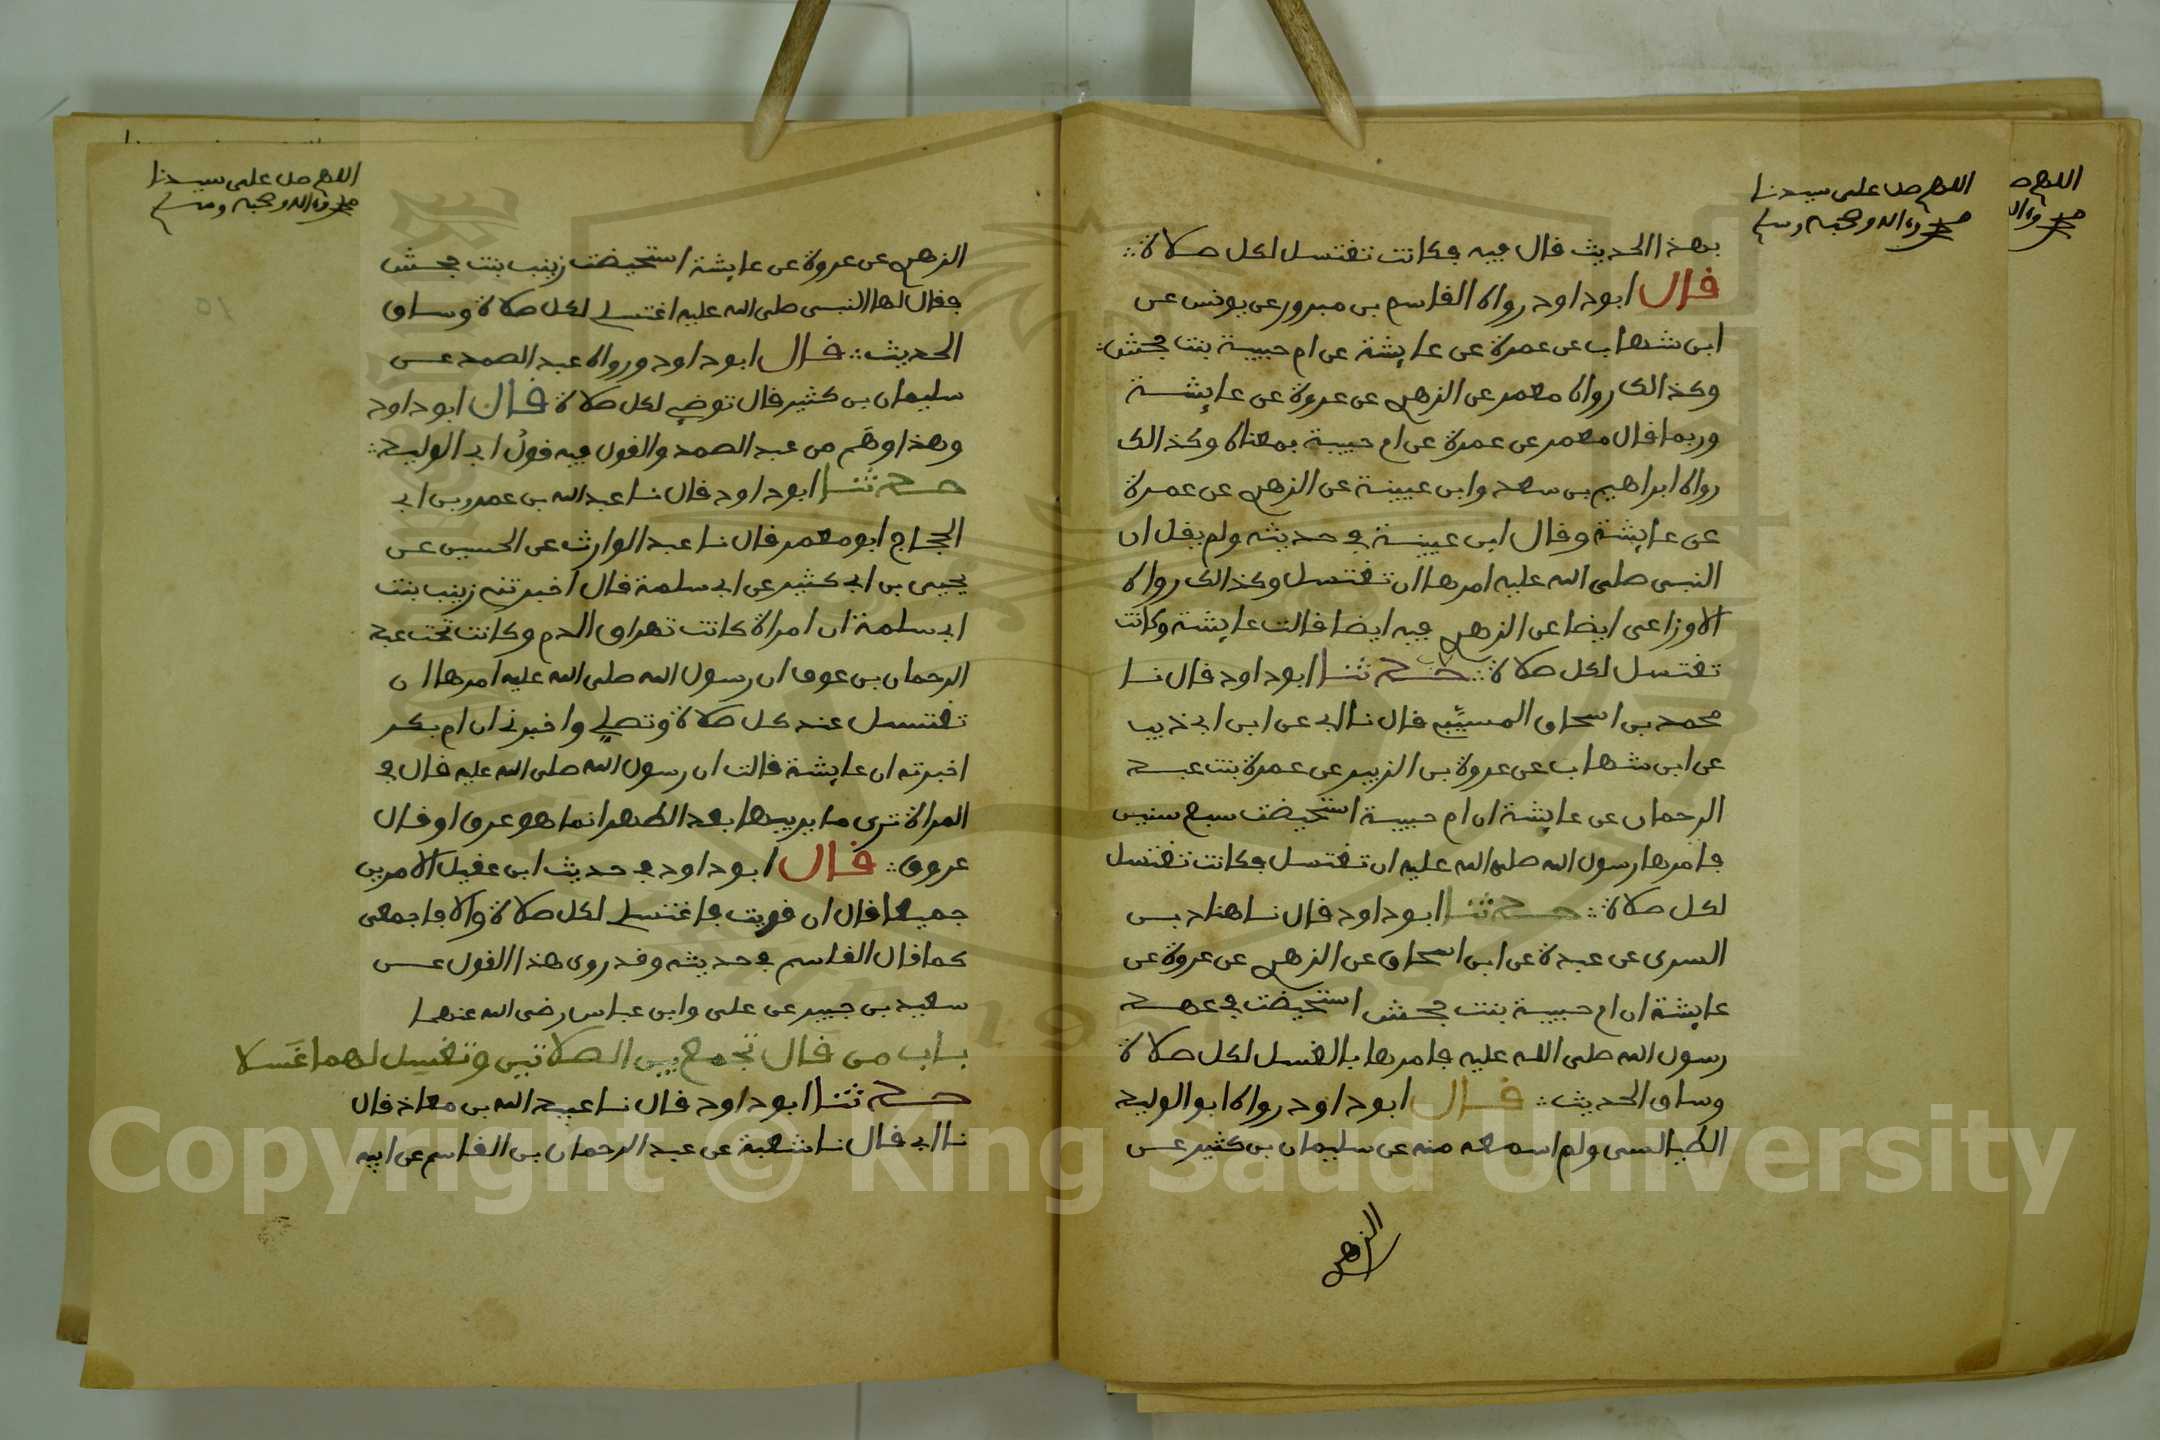 اللهم صل على سيدنا
محمد وءاله وصحبه وسلم
بهذا الحديث قال فيه فكانت تغتسل لكل صلاة
قال ابو داود رواه القاسم بن مبرور عن يونس عن
ابن شهاب عن عمرة عن عايشة عن ام حبيبة بنت جحش
وكذالك رواه معمر عن الزهري عن عروة عن عايشة
وربما قال معمر عن عمرة عن ام حبيبة بمعناه وكذالك
رواه ابراهيم بن سعد وابن عيينة عن الزهري عن عمرة
عن عايشة وقال ابن عيينة في حديثه ولم يقل ان
النبي صلى الله عليه امرها ان تغتسل وكذالك رواه
الاوزاعي ايضا عن الزهري فيه ايضا قالت عايشة وكانت
تغتسل لكل صلاة حدثنا ابو داود قال نا
محمد بن اسحاق المسيبي قال نا ابي عن ابن ابي ذيب
عن ابن شهاب عن عروة بن الزبير عن عمرة بنت عبد
الرحمان عن عايشة ان ام حبيبة استحيضت سبع سنين
فامرها رسول الله صلى الله عليه ان تغتسل فكانت تغتسل
لكل صلاة حدثنا ابو داود قال نا هناد بن
السري عن عبدة عن ابن اسحاق عن الزهري عن عروة عن
عايشة ان ام حبيبة بنت جحش استحيضت في عهد
رسول الله صلى الله عليه فامرها بالغسل لكل صلاة
وساق الحديث قال ابو داود رواه ابو الوليد
الطيالسي ولم اسمعه منه عن سليمان بن كثير عن
الزهري
اللهم صل على سيدنا
محمد وءاله وصحبه وسلم
الزهري عن عروة عن عايشة استحيضت زينب بنت جحش
فقال لها النبي صلى الله عليه اغتسلي لكل صلاة وساق
الحديث قال ابو داود ورواه عبد الصمد عن
سليمان بن كثير قال توضي لكل صلاة قال ابو داود
وهذا وهم من عبد الصمد والقول فيه قول ابي الوليد
حدثنا ابو داود قال نا عبد الله بن عمرو بن ابي
الحجاج ابو معمر قال نا عبد الوارث عن الحسين عن
يحيى بن ابي كثير عن ابي سلمة قال اخبرتني زينب بنت
ابي سلمة ان امراة كانت تهراق الدم وكانت تحت عبد
الرحمان بن عوف ان رسول الله صلى الله عليه امرها ان
تغتسل عند كل صلاة وتصلي واخبرني ان ام بكر
اخبرته ان عايشة قالت ان رسول الله صلى الله عليه قال في
المراة ترى ما يريبها بعد الطهر انما هو عرق او قال
عروق قال ابو داود في حديث ابن عقيل الامرين
جميعا قال ان قويت فاغتسلي لكل صلاة والا فاجمعي
كما قال القاسم في حديثه وقد روي هذا القول عن
سعيد بن جبير عن علي وابن عباس رضي الله عنهما
باب من قال تجمع بين الصلاتين وتغسل لهما غسلا
حدثنا ابو داود قال نا عبيد الله بن معاذ قال
نا ابي قال نا شعبة عن عبد الرحمان بن القاسم عن ابيه
Copyright © King Saud University